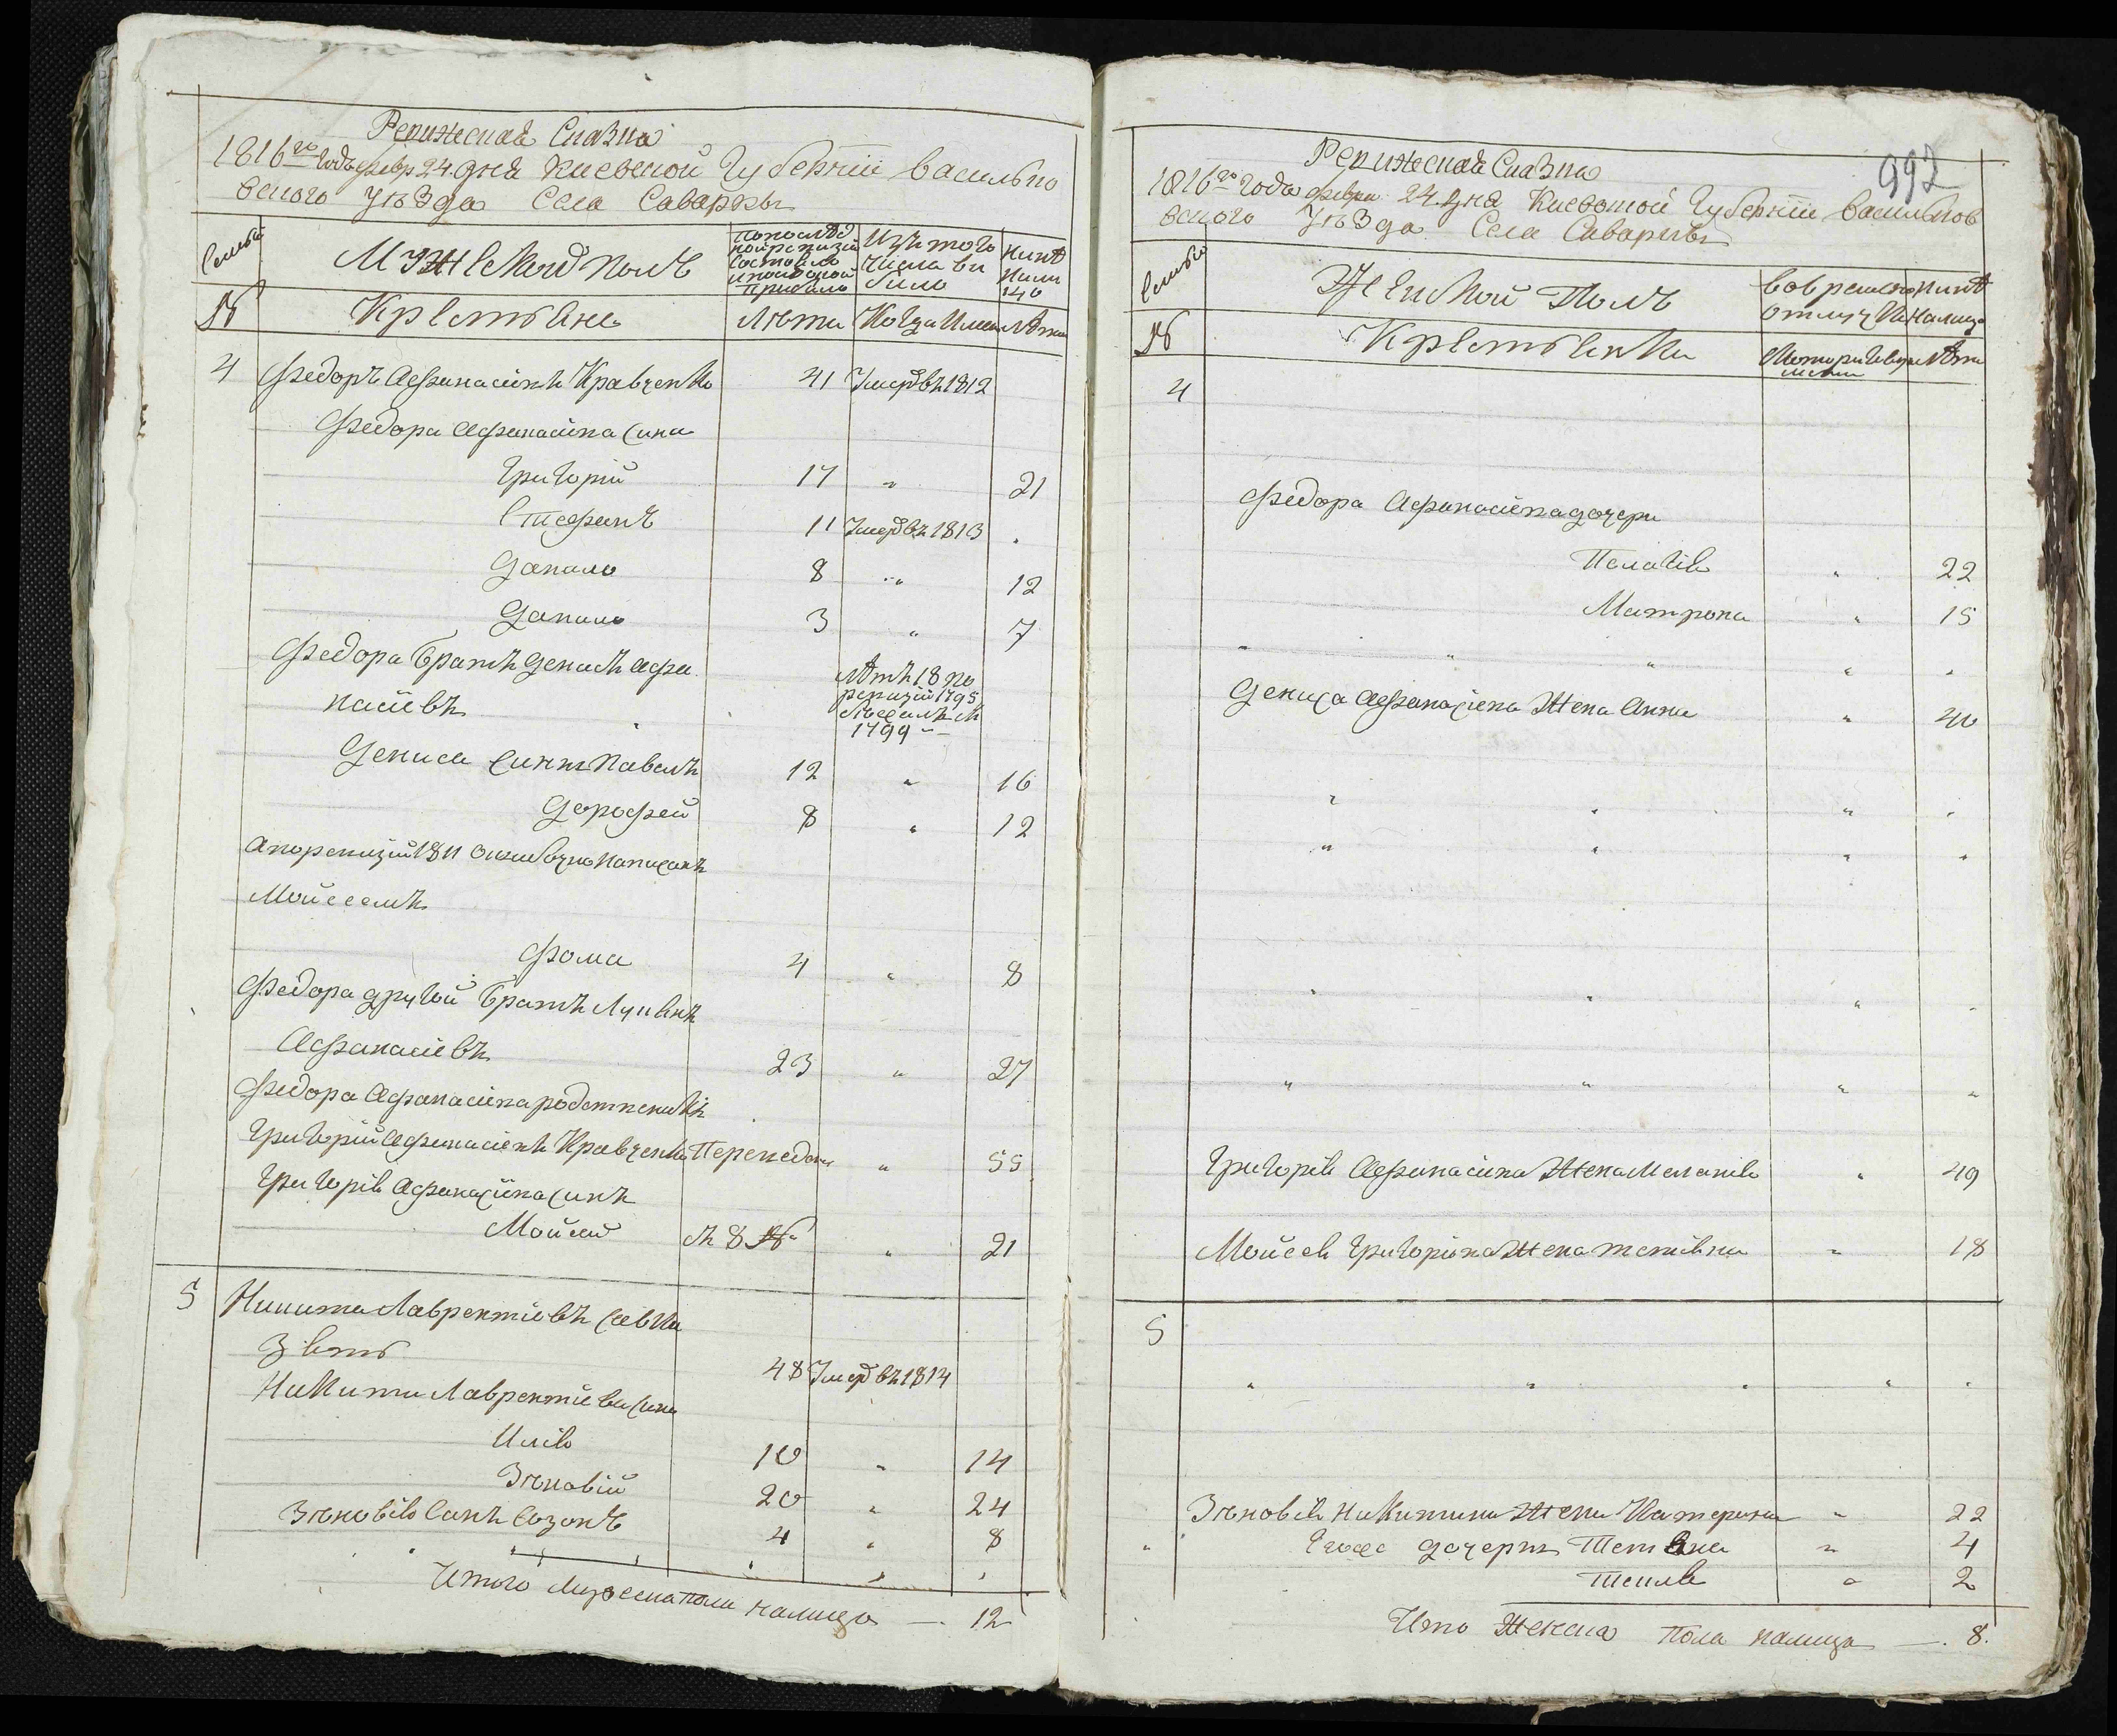 Ревижская Сказка
1816го Года февр 24. дня Киевской Губернии Василько
вского Уѣзда Села Саварки
Семьи
Мужеской полъ
По послѣд
ней ревизіи
состояло
и после оной
прибыло
Изъ того
числа вы
было
Нинѣ
№
Крестьяне
Лѣта
Когда имен
Лѣта
4 Федоръ Афанасіевъ Кравченко 41 Умеръ въ 1812
Федора Афанасіева Сини
Григорій 17 " 21
Стефанъ 11 Умеръ въ 1813 .
Данило 8 " 12
Данило 3 " 7
Федора братъ Денисъ Афа
насіевъ
лѣтъ 18 по
ревизіи 1795
1799
Дениса Синъ Павелъ 12 " 16
Дорофей 8 " 12
а по ревизіи 1811 ошибочно написанъ
Мойсеемъ
Фома 4 " 8
Федора другой братъ Лукянъ
Афанасіевъ 23 " 27
Федора Афанасіева родственникъ
Григорій Афанасіевъ Кравченко Переведен " 55
Григорія Афанасіева Синъ
Мойсей съ 8 № " 21
5 Никита Лаврентіевъ Савки
Зять 48 Умеръ въ 1814
Никиты Лаврентіева Сини
Илія 10 " 14
Зѣновій 20 " 24
Зѣновія Синъ Созонъ 4 " 8
Итого Мужеска пола налицо — 12
992
Ревижская Сказка
1816го Года февра 24. дня Киевской Губернии Васильков
ского Уѣзда Села Саварки
Семьи
Женской Полъ
Во временной
отлучки
Нинѣ
Налицо
№
Крестьянки
Лѣта
4
Федора Афанасіева дочери
Пелагія " 22
Матрона " 15
" " " " "
Дениса Афанасіева Жена Анна " 40
" " " "
" " " "
" " " "
" " " "
Григорія Афанасіева Жена Меланія " 49
Мойсея Григоріева Жена Тетіяна " 18
5
" " " " "
Зѣновія Никитина Жена Катерина " 22
" Его же дочери Тетяна " 4
Текля " 2
Итого Женска пола налицо — 8.